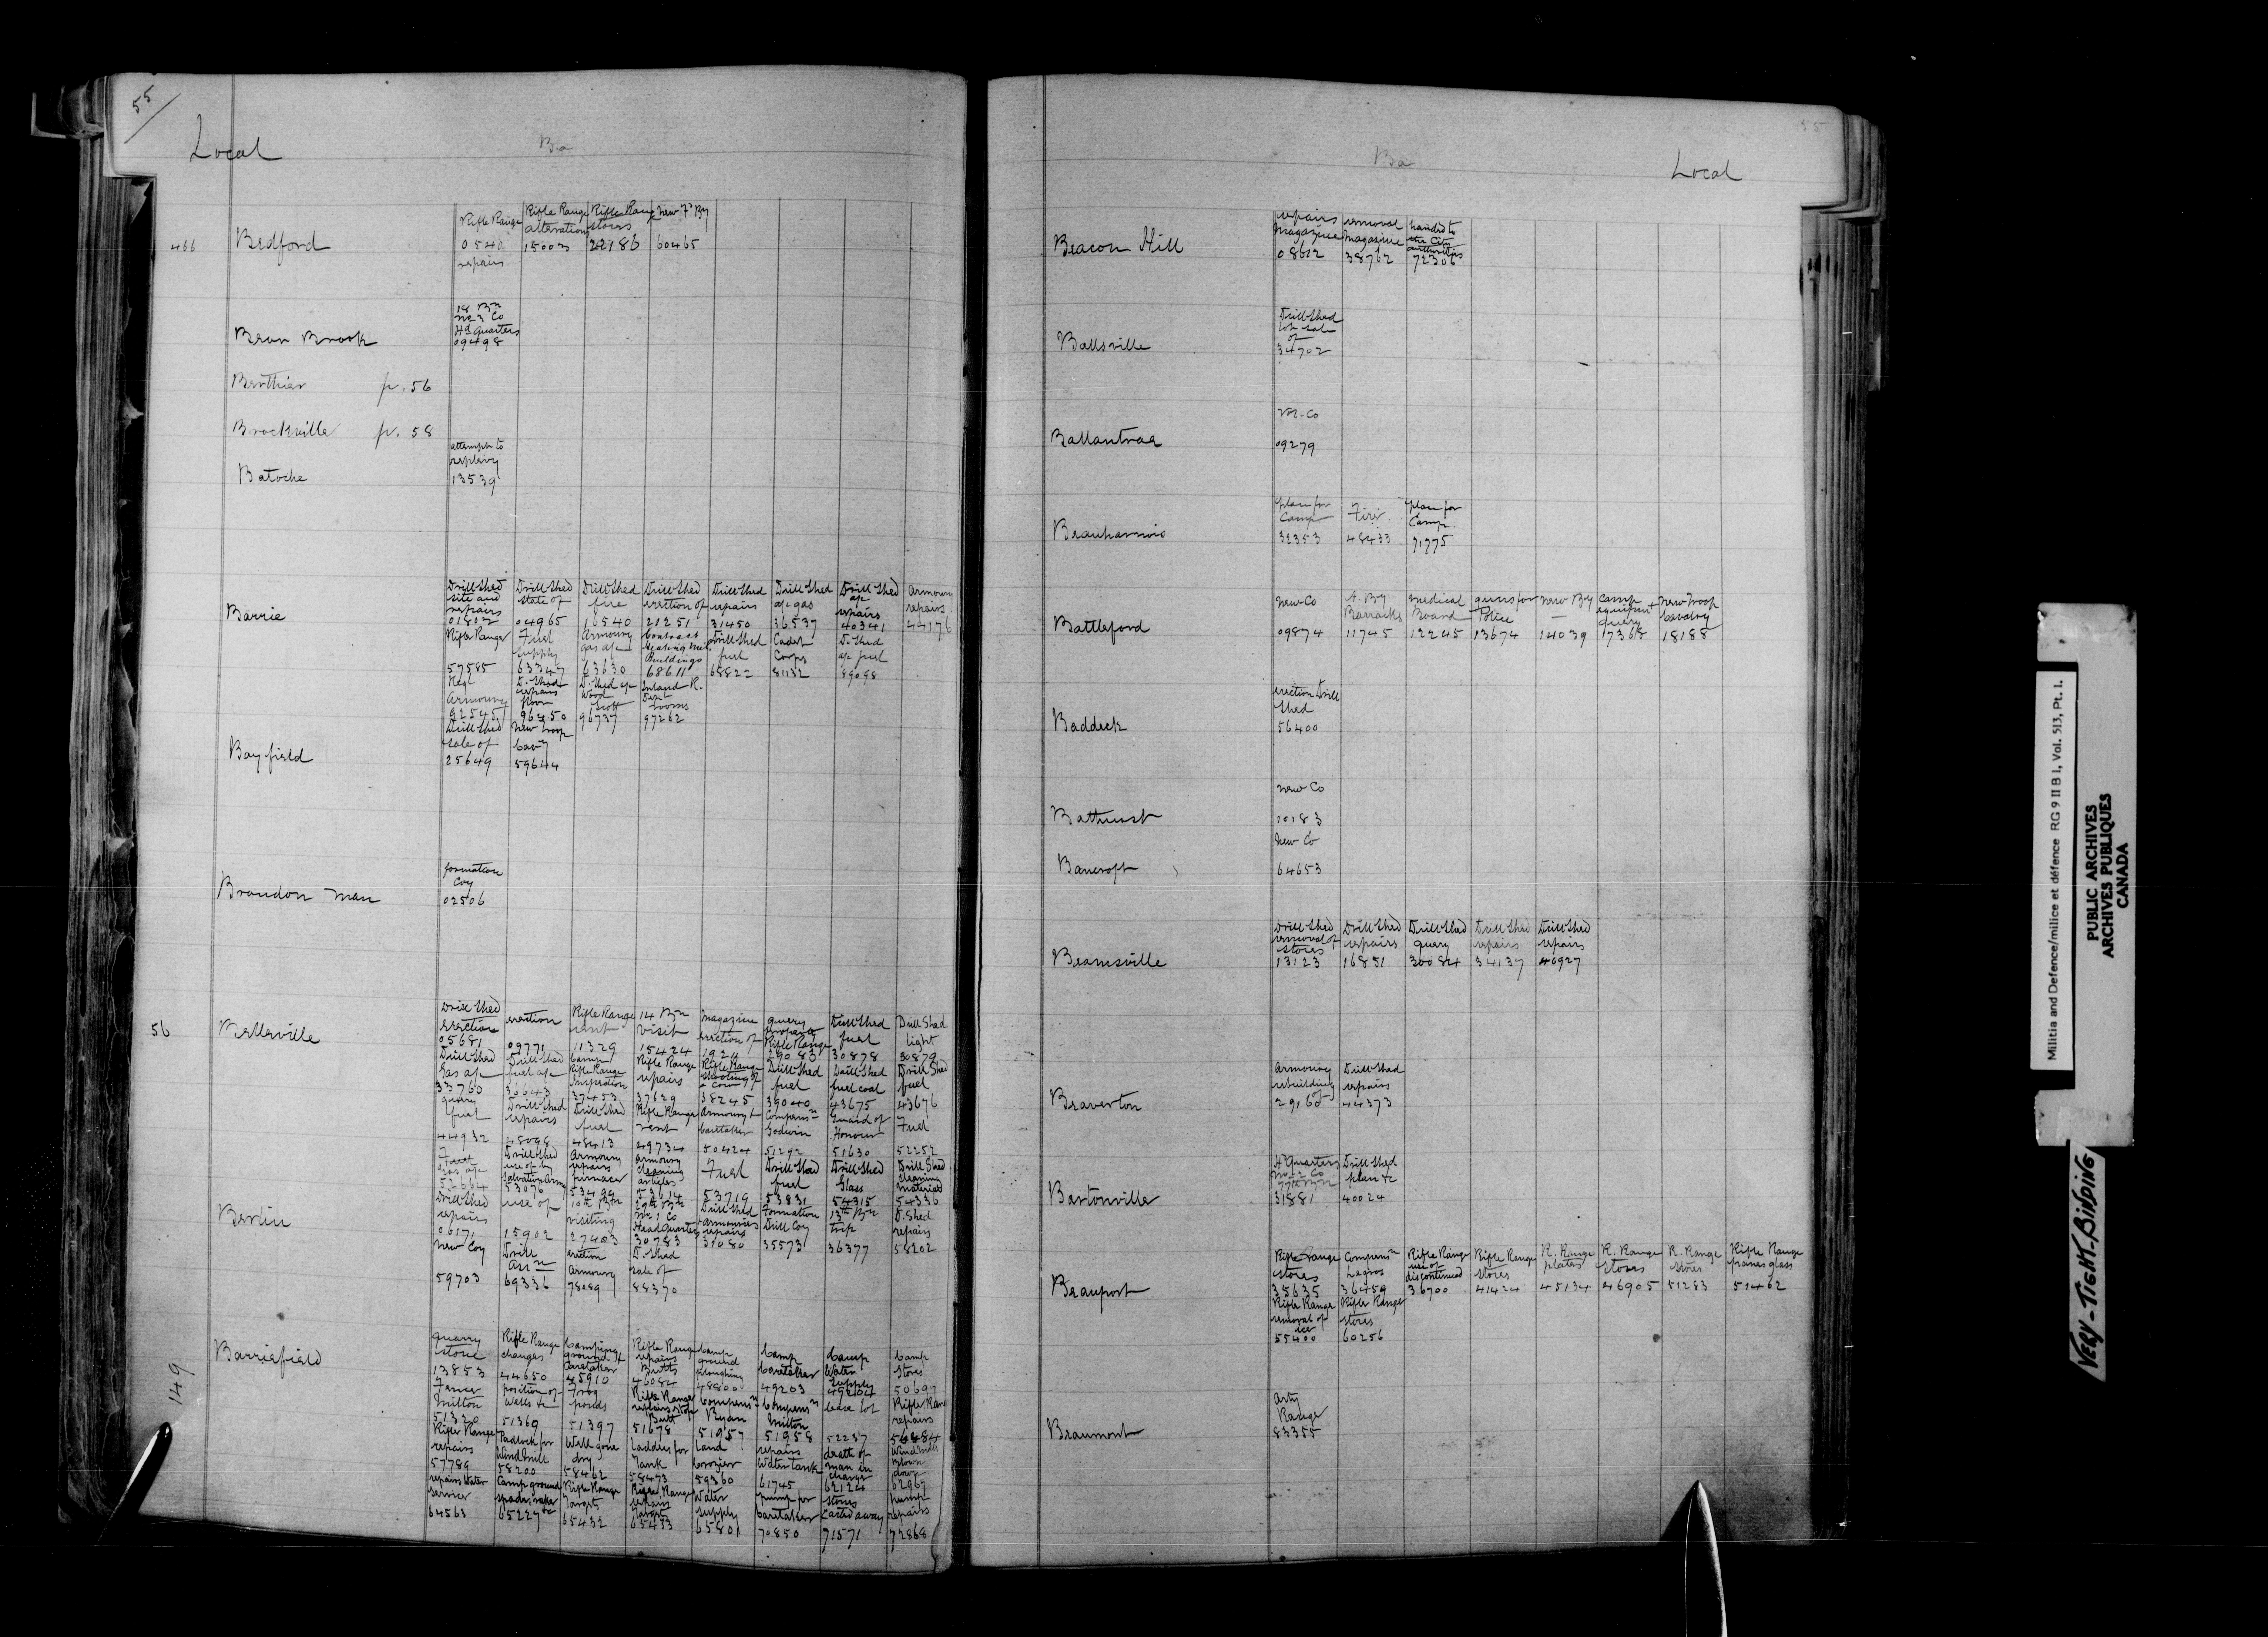 55
Local
Ba
466
Bedford
Rifle Range 0540 repairs
Rifle Range alterations 15003
Rifle Range stores 22186
New Fd By 60465
Bear Brook
18 Bn No 3 Co Hd Quarters 09498
Berthier p. 56
Brockville p. 58
Batoche
attempt to replevy
13539
Barrie
Drill Shed site and repairs 01802
Drill Shed state of 04965
Drill Shed fire 16540
Drill Shed erection of 21251
Drill Shed repairs 31450
Drill Shed a/c gas 36537
Drill Shed a/c repairs 40341
Armoury repairs 44176
Rifle Range 57585
Fuel supply 63347
Armoury gas a/c 63630
Contract heating Buildings 68611
Drill Shed fuel 68822
Cadet Corps 81132
D. Shed a/c fuel 89098
Regl Armoury 92545
D. Shed repairs floor 96450
D. Shed a/c Wood Scott 96737
Inland R. Dept rooms 97262
Bayfield
Drill Shed sale of 25649
New Troop Cavy 59644
Brandon Man
formation Coy
02506
56
Belleville
Drill Shed erection 05681
erection 09771
Rifle Range rent 11329
14 Bn visit 15424
Magazine erection of
query proposed Rifle Range 29083
Drill Shed fuel 30878
Drill Shed light 30879
Drill Shed Gas a/c 33760
Drill Shed fuel a/c 36643
Camp Rifle Range Inspection 37453
Rifle Range repairs 37629
Rifle Range shooting of a cow 38245
Drill Shed fuel 39040
Drill Shed fuel coal 43675
Drill Shed fuel 43676
query fuel 44932
Drill Shed repairs 48098
Drill Shed fuel 48413
Rifle Range rent 49734
Armoury & Caretaker 50424
Compensn Godwin 51292
Guard of Honour 51630
Fuel 52252
gas a/c 52664
Drill Shed use of by Salvation Army 53076
Armoury repairs furnace 53494
Armoury cleaning articles 53614
Fuel 53719
Drill Shed fuel 53831
Drill Shed Glass 54315
Drill Shed cleaning material 54336
Berlin
Drill Shed repairs 06171
use of 15902
10th Btn visiting 27403
29th Btn No 1 Co Head Quarters 30783
Drill Shed armouries repairs 31080
Formation Drill Coy 35573
13th Bn trip 36377
D. Shed repairs 58202
New Coy 59703
Drill Assn 69336
erection armoury 78089
D. Shed sale of 88370
149
Barriefield
quarry stone 13853
Rifle Range changes 44650
Camping ground & Caretaker 45910
Rifle Range repairs Butts 46084
Camp ground ploughing 48800
Camp Caretaker 49203
Camp Water Supply 49204
Camp Stores 50697
Fence Milton 51320
position of Wells &c 51369
Frog ponds 51397
Rifle Range repairs stop Butt 51678
Compensn Ryan 51957
Compensn Milton 51958
lease lot 52237
Rifle Range repairs 56484
Rifle Range repairs 57789
Padlock for Windmill 58200
Well gone dry 58462
Ladders for Tank 58473
Land Crozier 59360
repairs Water tank 61745
death of man in charge 62124
Windmill blown down 62967
repairs Water service 64563
Camp ground spades, rakes &c 65227
Rifle Range Targets 65432
Rifle Range repairs Targets 65473
Water supply 65801
pump for Caretaker 70850
stores carted away 71571
pump repairs 72868
55
Ba
Local
Beacon Hill
repairs Magazine 08612
removal Magazine 38762
handed to the City authorities 72306
Ballsville
Drill Shed lot sale of
34702
Ballantrae
No. Co
09279
Beauharnois
plan for Camp 32353
Fire 48433
plan for Camp 71775
Battleford
New Co 09874
A. By Barracks 11745
Medical Board 12245
guns for Police 13674
New By 14039
Camp equipment query 17368
New Troop Cavalry 18188
Baddeck
erection Drill Shed
56400
Bathurst
New Co
10183
Bancroft
New Co
64653
Beamsville
Drill Shed removal of stores 13123
Drill Shed repairs 16851
Drill Shed query 30084
Drill Shed repairs 34137
Drill Shed repairs 46927
Beaverton
Armoury rebuilding of 29160
Drill Shed repairs 44373
Bartonville
Hd Quarters No 2 Co 77th Btn 31881
Drill Shed plan &c 40024
Beauport
Rifle Range stores 35635
Compensn Legros 36459
Rifle Range use of discontinued 36700
Rifle Range stores 41424
R. Range plates 45134
R. Range stores 46905
R. Range stores 51283
Rifle Range panes glass 51462
Rifle Range removal of ice 55400
Rifle Range stores 60256
Beaumont
Arty Range
83355
Militia and Defence/milice et défence RG 9 II B 1, Vol. 513, Pt. 1.
PUBLIC ARCHIVES
ARCHIVES PUBLIQUES
CANADA
VERY-TIGHT-BINDING